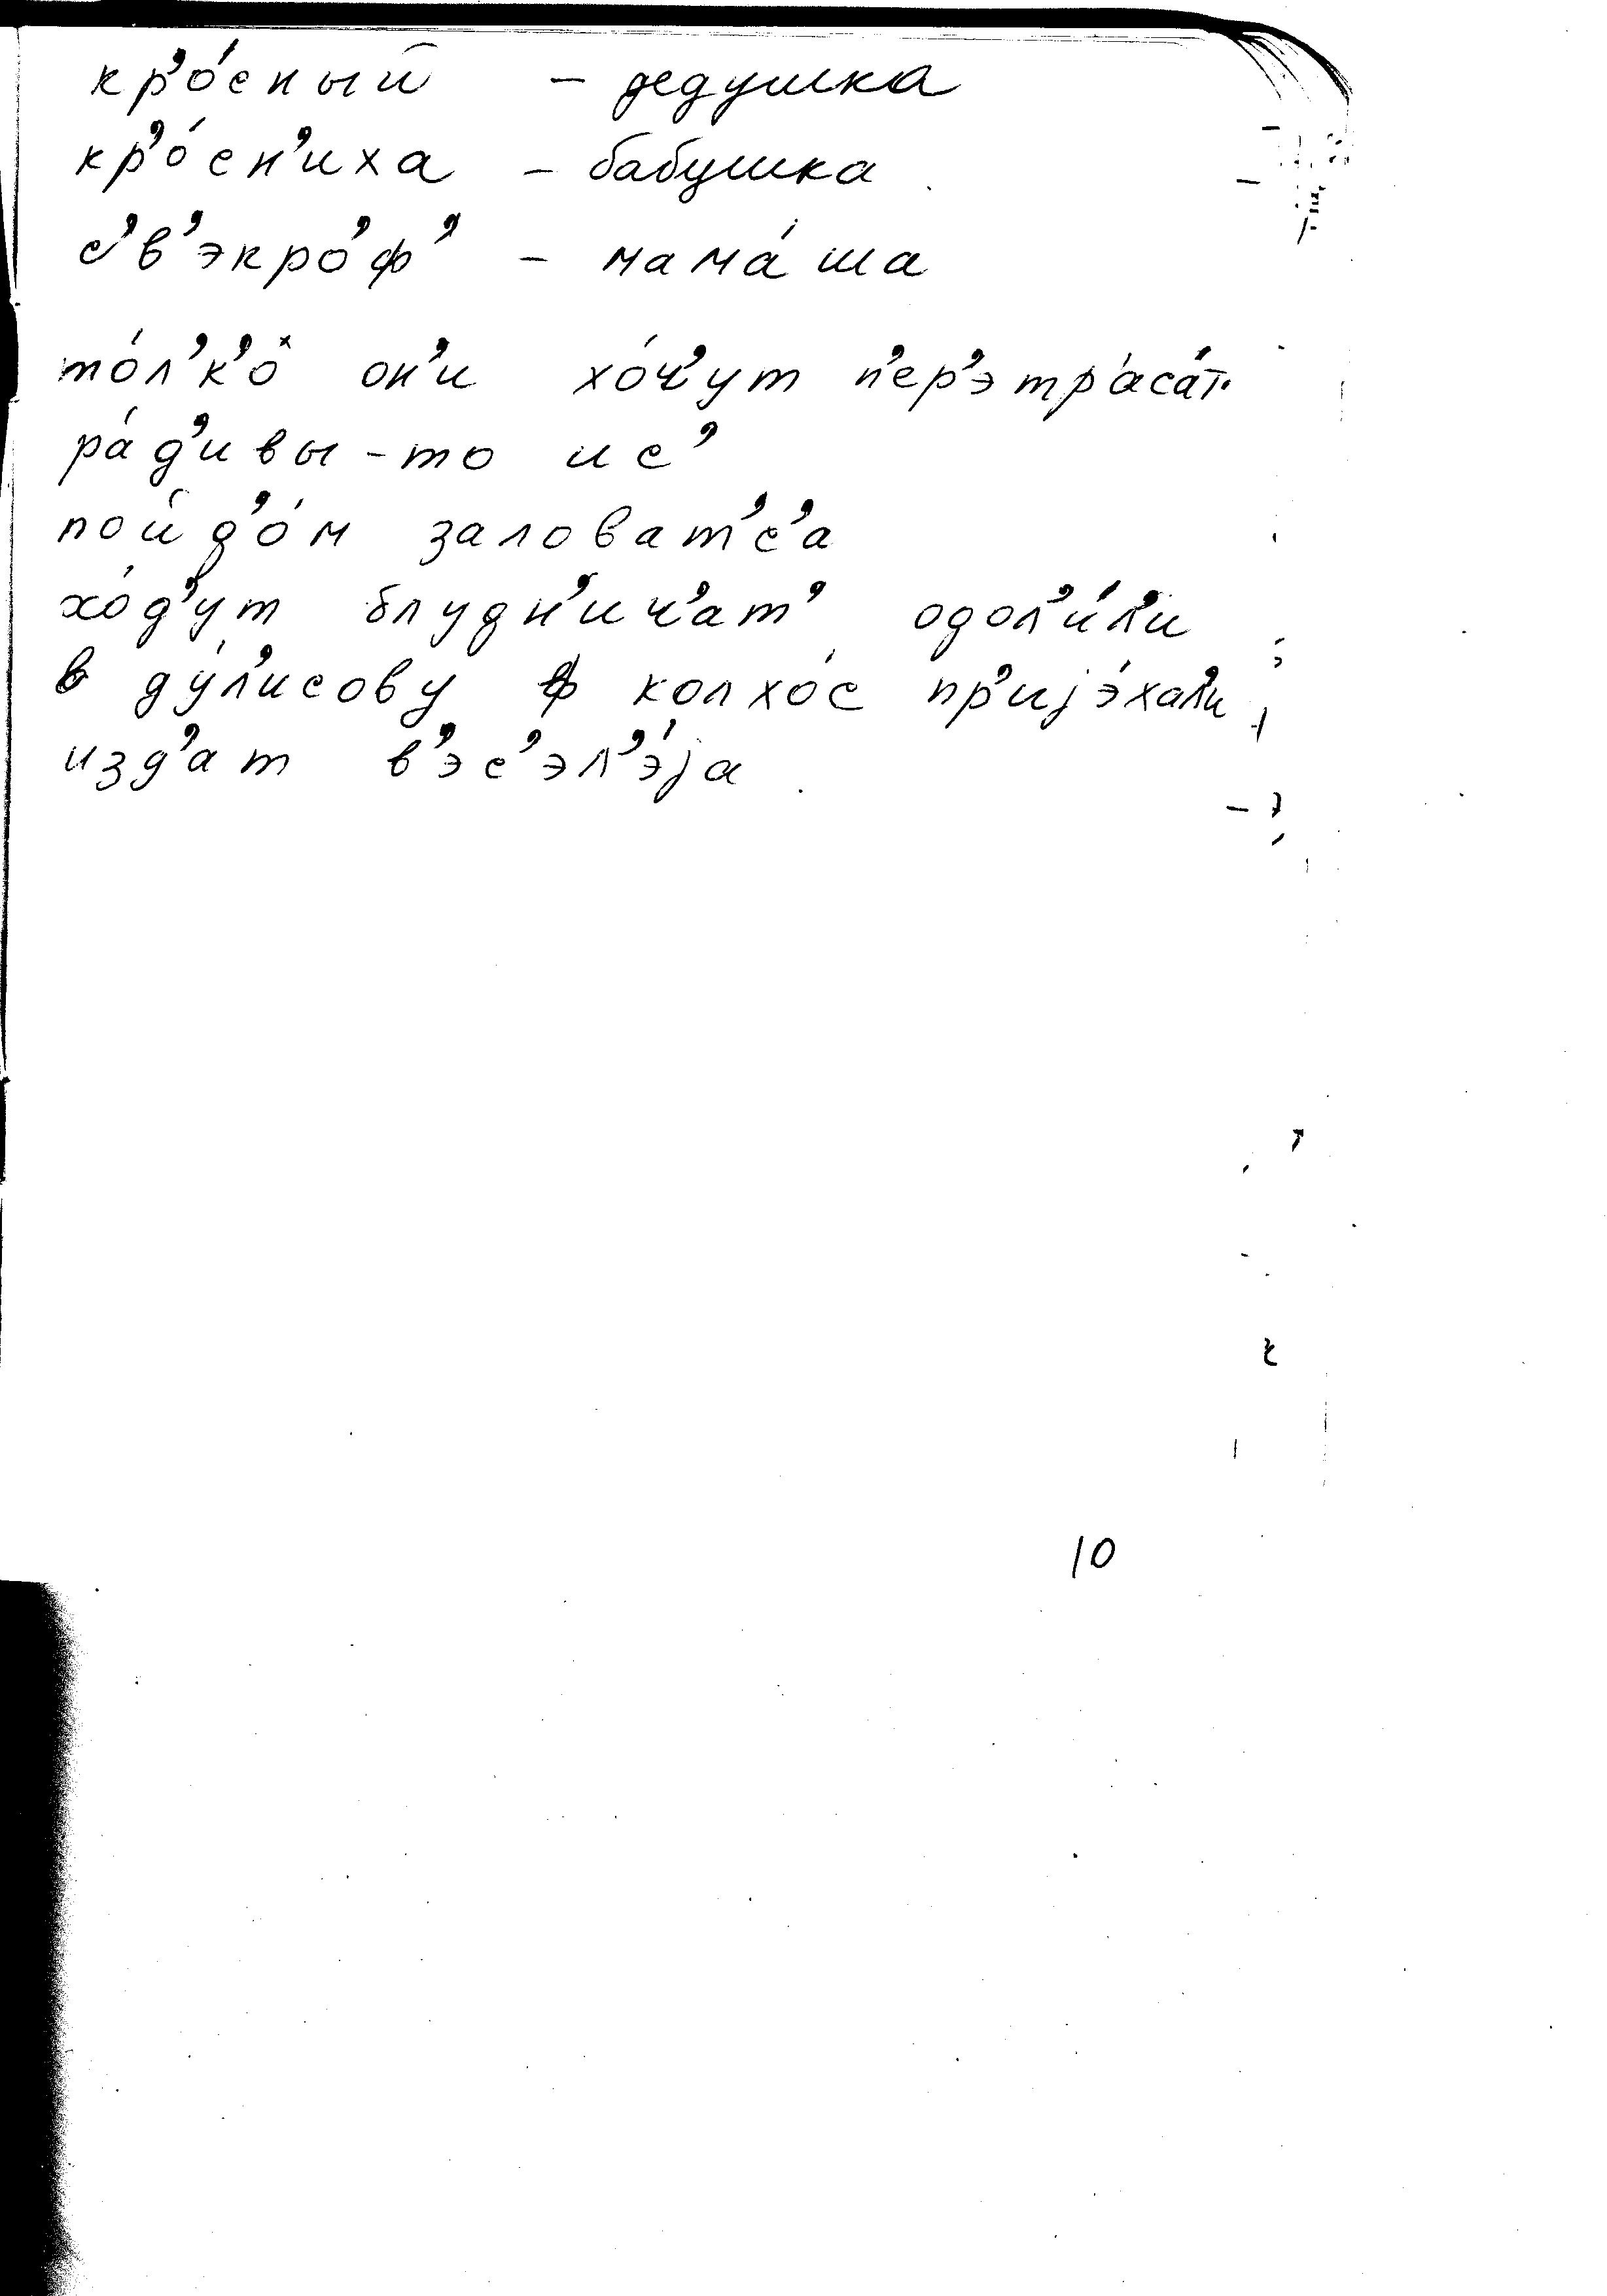 кр’о́сный – дедушка
кр’о́сн’иха – бабушка
с’в’экро́ф’ – мама́ша
то́л’к’о̂ он’и хо́ч’ут п’ер’э тр’аса́т’
ра́д’ивы-то ис’
пойд’о́м заловат’с’а
хо́д’ут блудн’ич’ат’ одол’и́л’и
в ду́л’исову ф колхо́с пр’иjэ́хал’и
изд’ат в’эс’эл’э́jа
10